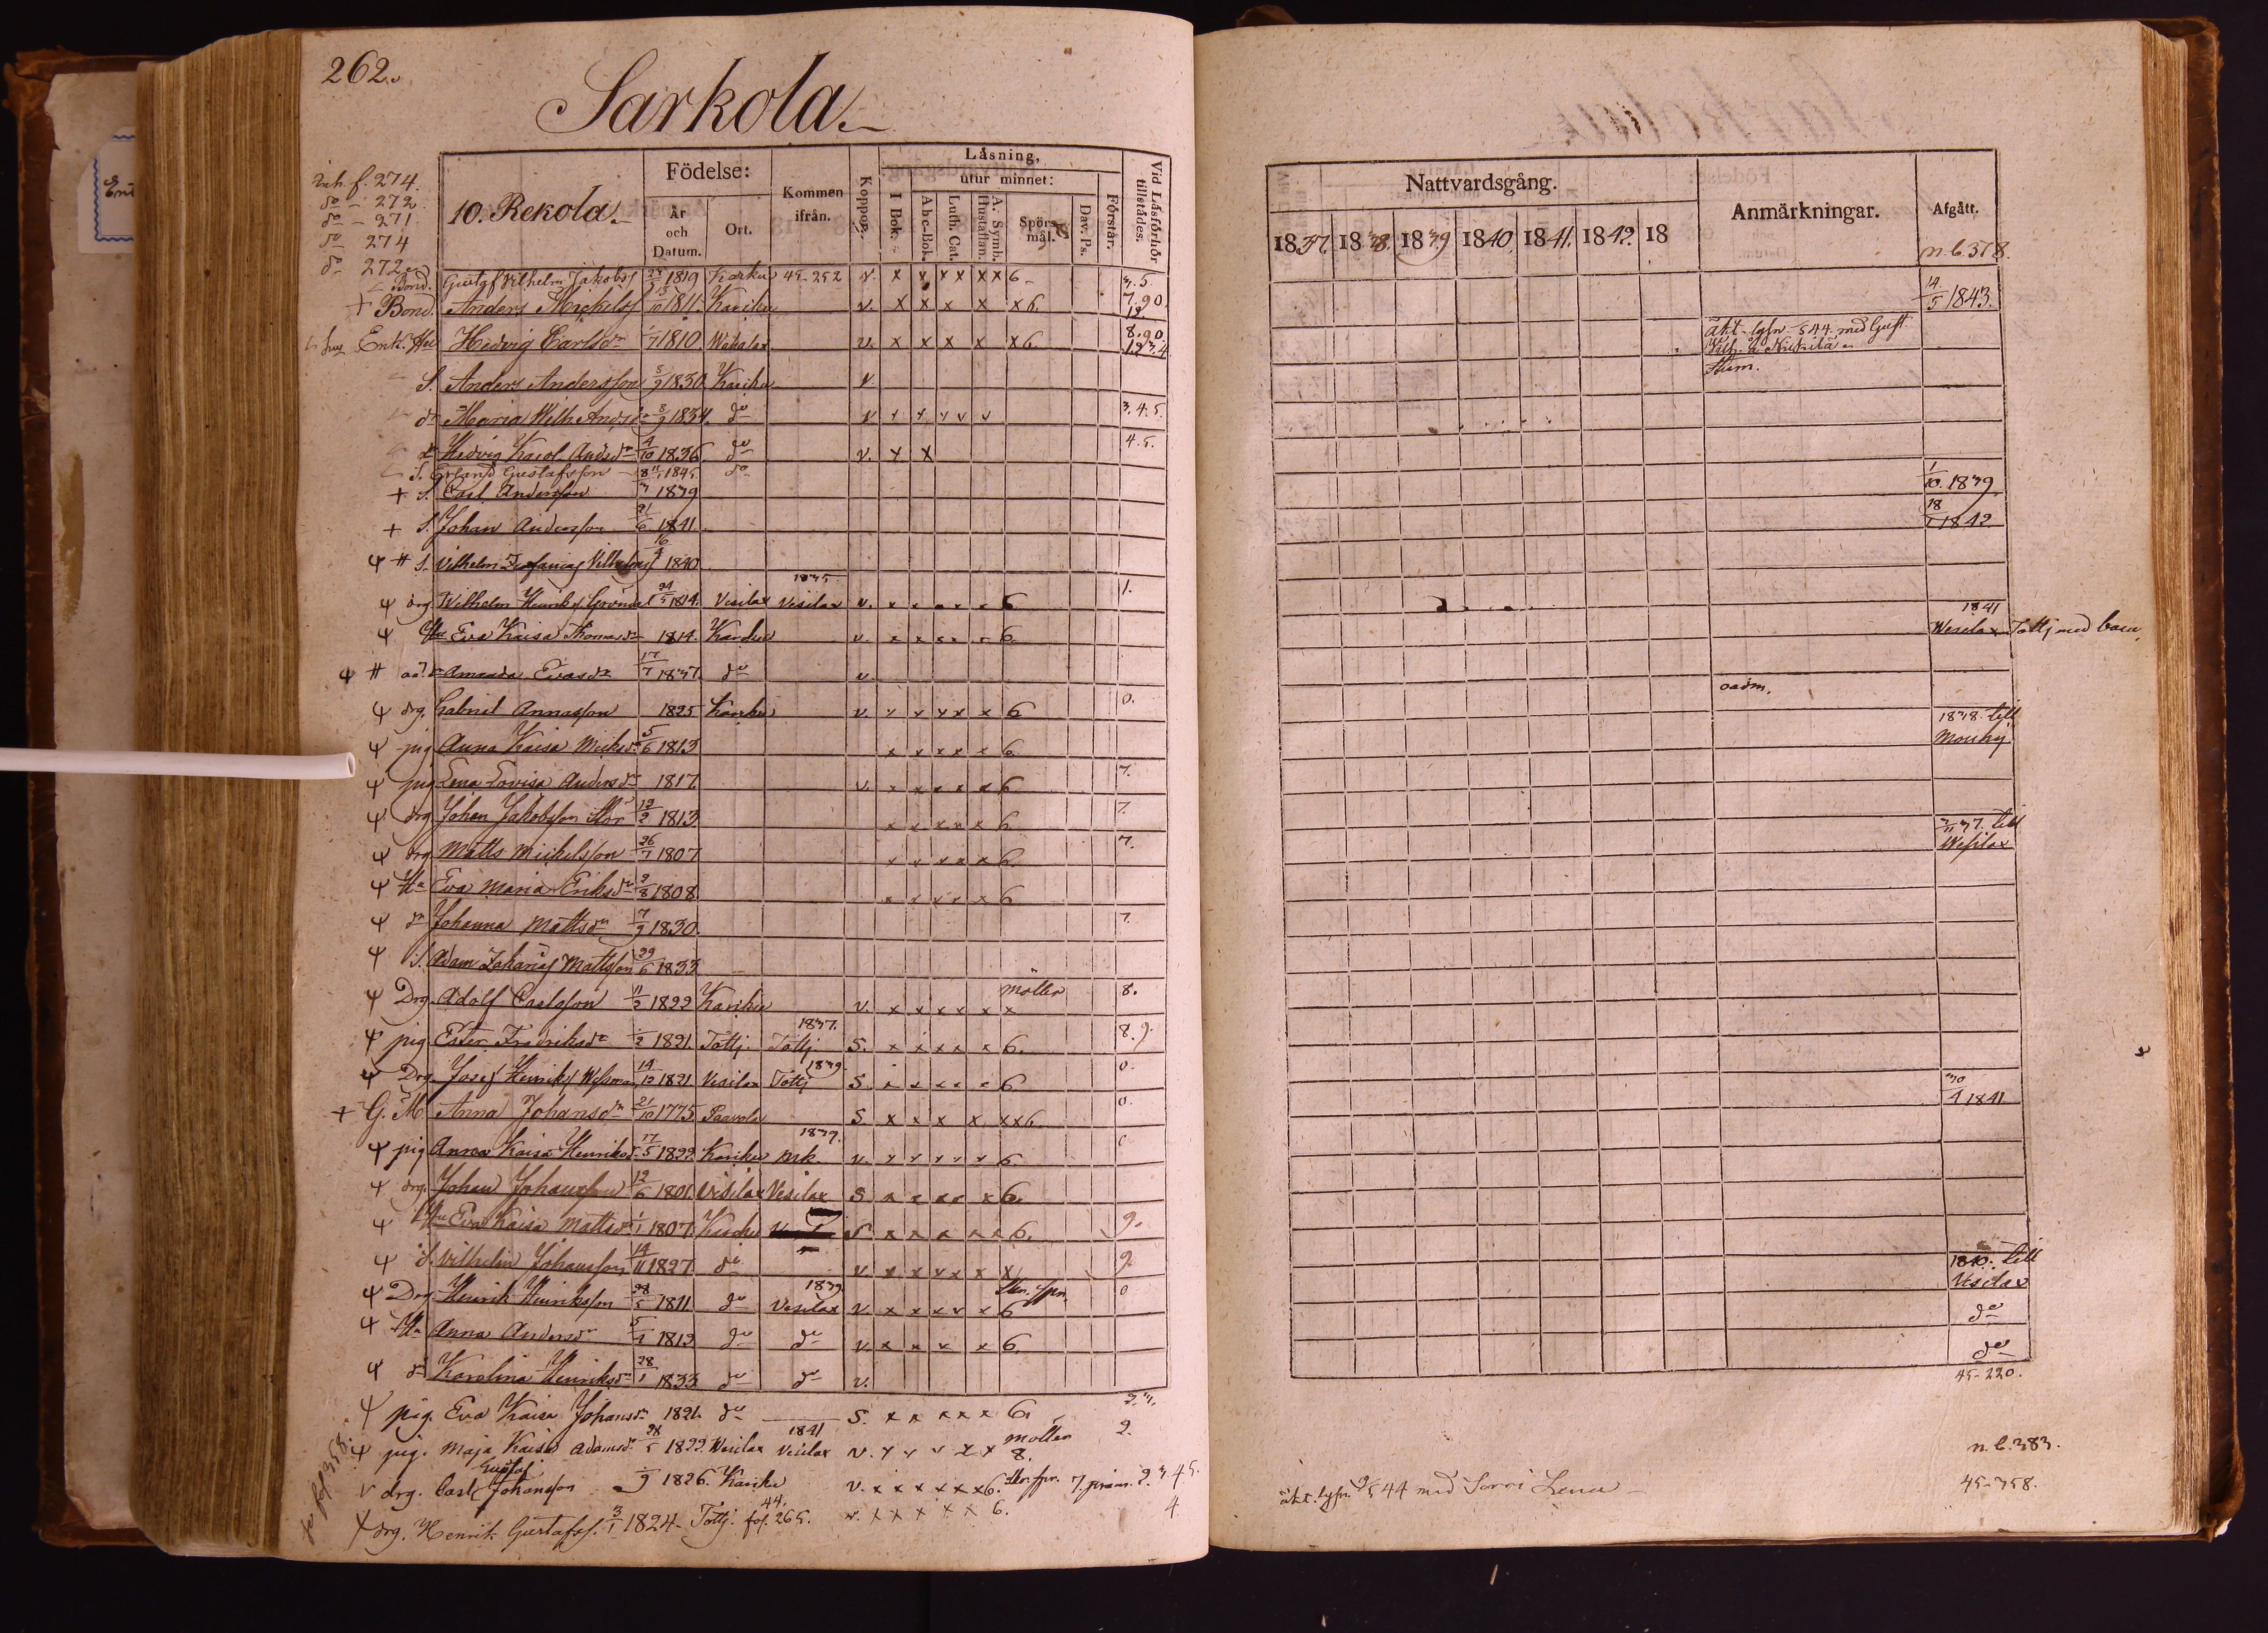 262.
Sarkola.
Inh. f. 274.
do - 272
do - 271
do 274
do 272
10. Rekola.
Födelse:
År och Datum.
Ort.
Kommen ifrån.
Koppor.
Läsning,
utur minnet:
I Bok.
Abc-Bok.
Luth. Cat.
A. Symb. Hustaflan.
Spörsmål.
Dav. Ps.
Förstår.
Vid Läsförhör tillstädes.
Bond. Gustaf Vilhelm Jakobss 1819 Karku 45-252 v. x x x x x x 6 3.5.
+ Bond. Anders Michelss 1811 Kariku v. x x x x x 6. 7.90
Enk. Hu Hedvig Carlsdr 1810. v. x x x x x 6 8.90.
S. Anders Andersson 5/9 1830. Kariku v.
dr Maria Wilh. Andsdr 8/9 1834. do v 3.4.5.
dr Hedvig Karol. Andsdr 4/10 1836 do v. x x 4.5.
S. Erland Gustafsson 1845 do
+ S. Carl Andersson 1839
+ S. Johan Andersson 21/6 1841
# S. Vilhelm Vilhelmss 16/4 1840
drg Wilhelm Henrikss 24/5 1814. Vesilax 1835 Vesilax v. x x x x x 6 1.
Hu Eva Kaisa Thomasdr 1814 Karku v. x x x x x 6
# oä. dr Amanda Evasdr 17/7 1837. do v.
drg. Gabriel Annasson 1825 Karku v. x x x x x 6 0.
pig Anna Kaisa Micksdr 5/6 1813 x x x x x 6
pig Lena Lovisa Andersdr 1817 v. x x x x x 6 7.
drg Johan Jakobsson 12/2 1813 x x x x x 6. 7.
drg Matts Mickelsson 26/7 1807 x x x x x 6 7.
Hu Eva Maria Eriksdr 2/8 1808. x x x x x 6
dr Johanna Mattsdr 7/9 1830. 7.
S. Adam Zakarias Mattsson 29/6 1833
Drg. Adolf Carlsson 11/2 1822 Kariku v. x x x x x x möllen 8.
pig Ester Fredriksdr 1821. Tottj. 1837. Tottj S. x x x x x 6. 8.9.
Drg Josef Henrikss 14/12 1821 Vesilax 1839. Tottj S. x x x x x 6 0.
+ G. M. Anna Johansdr 21/10 1775 Paavola S x x x x x x 6 0.
pig Anna Kaisa Henriksdr 17/5 1822. Kariku 1839. mk. v. x x x x x 6
drg. Johan Johansson 12/6 1801. Vesilax Vesilax S x x x x x 6.
Hu Eva Kaisa Mattsdr 1/1 1807. Karku S x x x x x x 6. 9.
S. Vilhelm Johansson 14/11 1827 do v x x x x x x 9.
Drg Henrik Henriksson 28/5 1811 do 1839 Vesilax v. x x x x x 6 0
Hu Anna Andersdr 1813 do do v. x x x x 6.
dr Karolina Henriksdr 28/1 1833 do do v.
pig. Eva Kaisa Johansdr 1821. do S. x x x x x 6. 2.3.
pig. Maja Kaisa Adamsdr 28/5 1822. Wesilax 1841 Vesilax v. x x x x x möllen 8. 2.
drg. Carl Gustaf Johansson 9 1826. Kariku v. x x x x x x 6. 2.3.4.5.
drg. Henrik Gustafss. 3/1 1824. Tottj. 44. fol. 265. v. x x x x x 6. 4
Nattvardsgång.
1837. 1838. 1839 1840. 1841. 1842. 18
Anmärkningar.
Afgått.
n. b. 378.
14/5 1843.
äkt. lysn. 5 44. med Gust.
1/10. 1839.
18/1 1842
1841
Wesilax Tottj med barn.
oadm.
1838. till
Mouhij
2/11 37. till
Wesilax
30/4 1841
1840. till
Vesilax
do
do
45-220.
n. b. 383.
äkt. lysn. 2/5 44 med Sorri Lena
45-358.